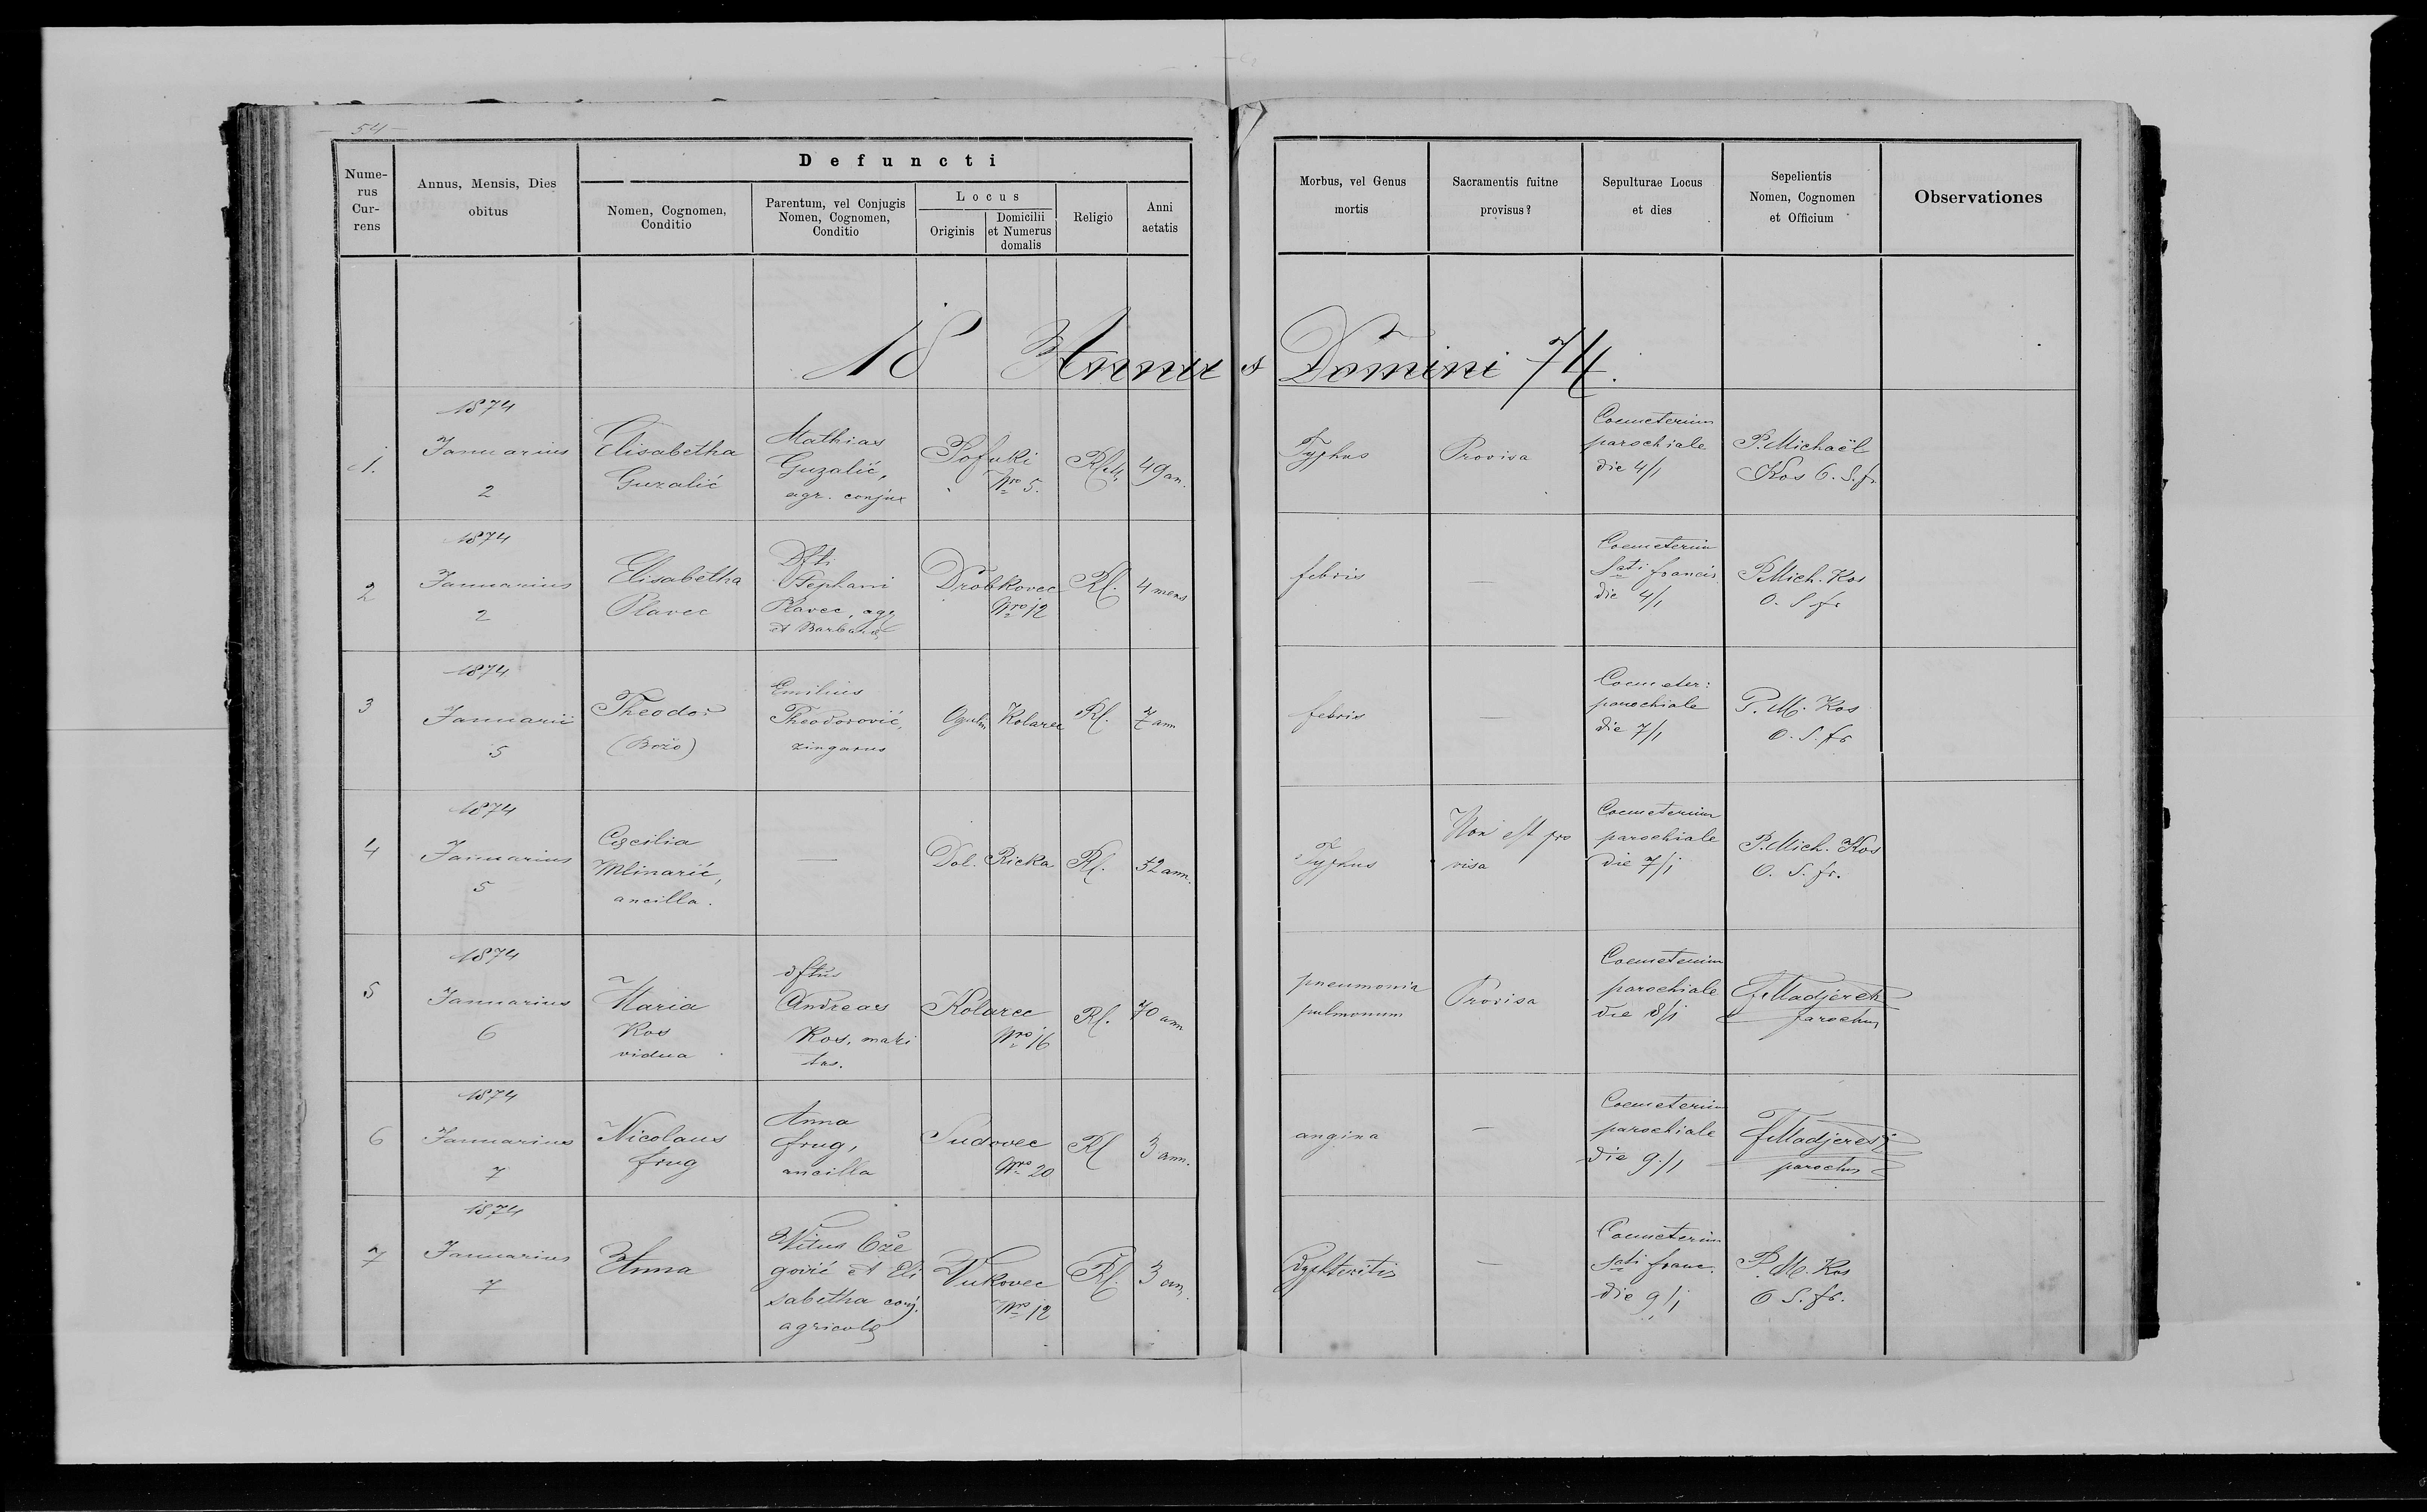 54
Defuncti
Nume-
rus
Cur-
rens
Annus, Mensis, Dies
obitus
Nomen, Cognomen,
Conditio
Parentum, vel Conjugis
Nomen, Cognomen,
Conditio
Locus
Originis
Domicilii
et Numerus
domalis
Religio
Anni
aetatis
Morbus, vel Genus
mortis
Sacramentis fuitne
provisus?
Sepulturae Locus
et dies
Sepelientis
Nomen, Cognomen
et Officium
Observationes
18 Annus Domini 74.
1.
1874
Januarius
2
Elisabetha
Guzalić
Mathias
Guzalić,
agr. conjux
Pofuki
Nro 5.
49 an.
Typhus
Provisa
Coemeterium
parochiale
die 4/1
P. Michaël
Kos O. S. fr.
2
1874
Januarius
2
Elisabetha
Plavec
Dfti
Stephani
Plavec, agr
et Barbara
Drobkovec
Nro 12
Rl.
4 mens
febris
—
Coemeterium
Scti francis
die 4/1
P. Mich. Kos
O. S. fr
3
1874
Januarii
5
Theodor
(Božo)
Emilius
Theodorović,
zingarus
Ogulin
Kolarec
Rl.
7 ann
febris
—
Coemeter:
parochiale
die 7/1
P. M. Kos
O. S. fr
4
1874
Januarius
5
Cæcilia
Mlinarić,
ancilla.
—
Dol. Rieka
Rl.
32 ann.
Typhus
Non est pro
visa
Coemeterium
parochiale
die 7/1
P. Mich. Kos
O. S. fr.
5
1874
Januarius
6
Maria
Kos
vidua
dftus
Andreas
Kos, mari
tus.
Kolarec
Nro 16
Rl.
70 ann
pneumonia
pulmonum
Provisa
Coemeterium
parochiale
die 8/1
parochus
6
1874
Januarius
7
Nicolaus
frug
Anna
frug,
ancilla
Sudovec
Nro 20
Rl
3 ann.
angina
—
Coemeterium
parochiale
die 9/1
parochus
7
1874
Januarius
7
Anna
Vitus Ože
gović et Eli
sabetha conj.
agricolæ
Vukovec
Nro 12
Rl.
3 an
Dyphteritis
—
Coemeterium
Scti franc.
die 9/1
P. M. Kos
O S. fr.